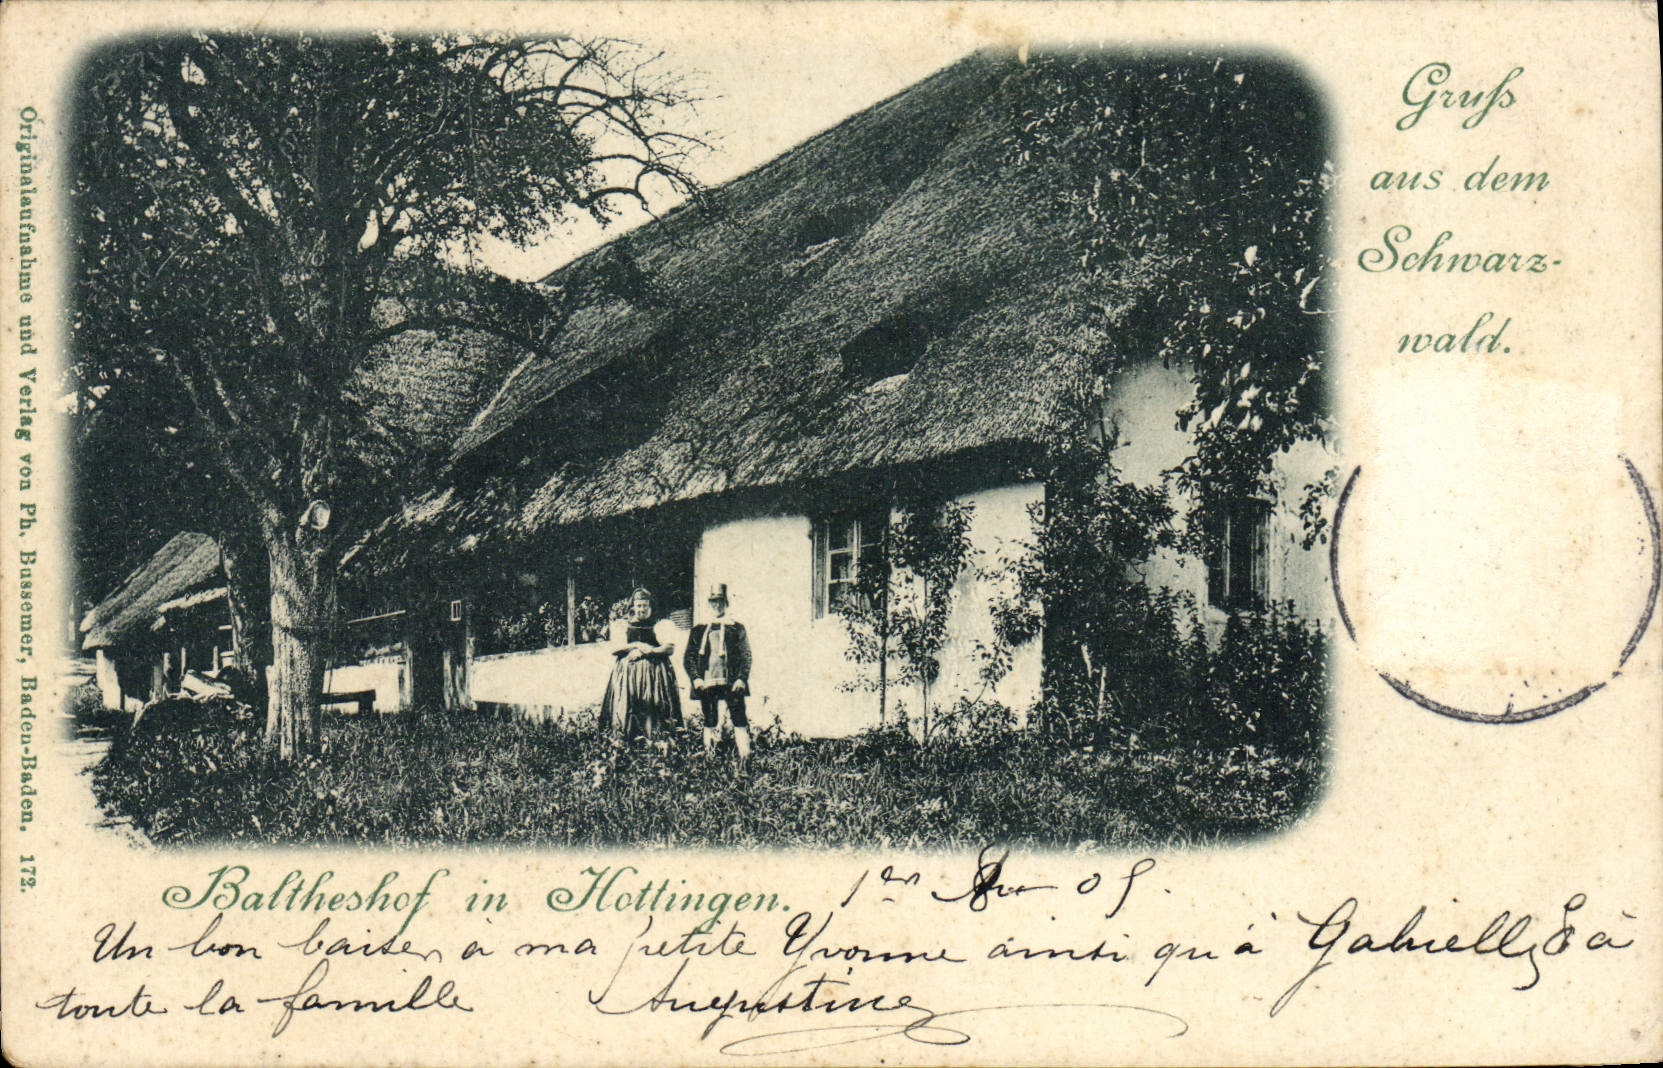 Gruſs
aus dem
Schwarz-
wald.
Originalaufnahme und Verlag von Ph. Bussemer, Baden-Baden. 172.
Baltheshof in Hottingen.
1er 05.
Un bon baiser à ma petite Yvonne ainsi qu'à Gabrielle & à
toute la famille Augustine